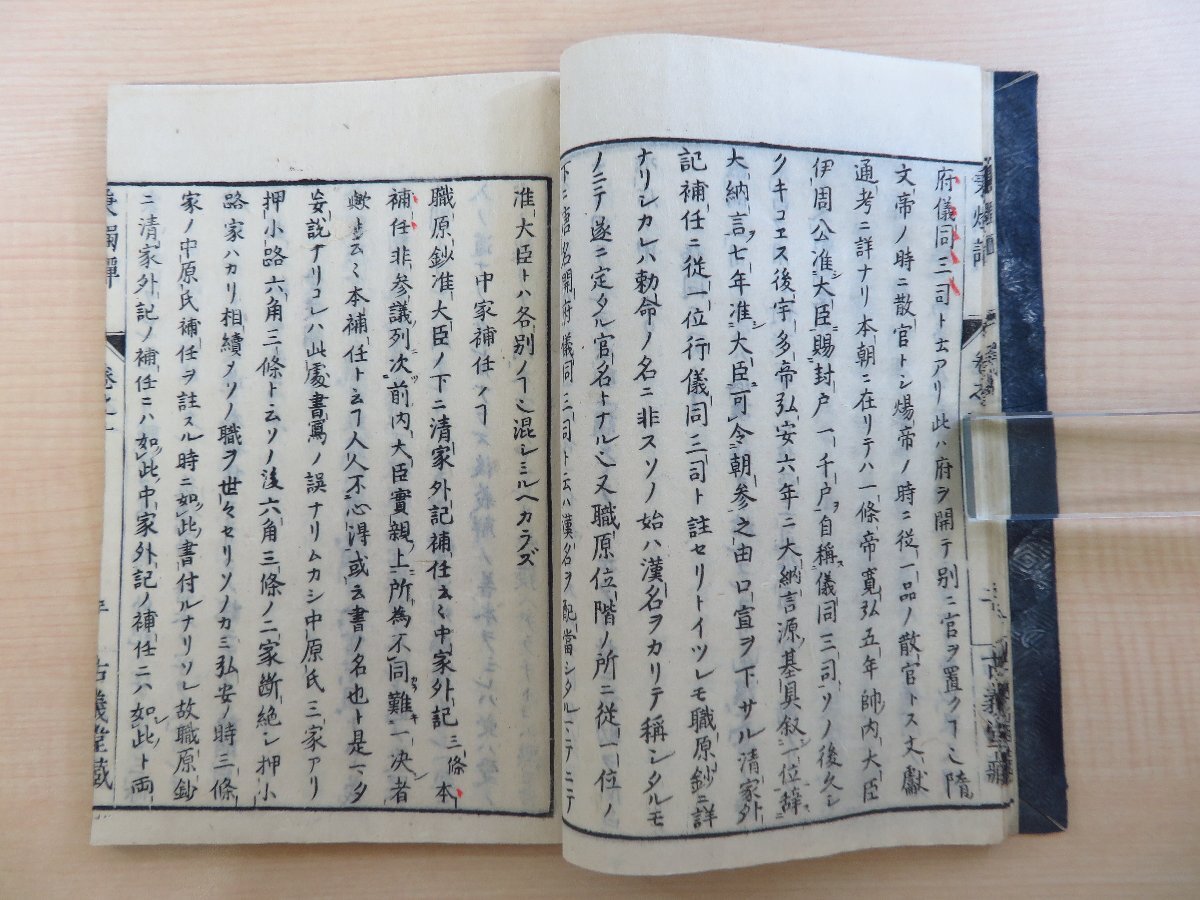 府儀同三司ト云アリ此ハ府ヲ開テ別ニ官ヲ置クヿ也隋
文帝ノ時ニ散官トシ煬帝ノ時ニ從一品ノ散官トス文獻
通考ニ詳ナリ本朝ニ在リテハ一條帝寛弘五年帥内大臣
伊周公准大臣賜封戸一千戸自稱儀同三司ソノ後久シ
クキコエス後宇多帝弘安六年ニ大納言源基具叙一位辞
大納言七年准大臣可令朝参之由口宣ヲ下サル清家外
記補任ニ從一位行儀同三司ト註セリトイツレモ職原鈔ニ詳
ナリシカレハ勅命ノ名ニ非スソノ始ハ漢名ヲカリテ稱シタルモ
ノニテ遂ニ定タル官名トナル也又職原位階ノ所ニ從一位ノ
下ニ唐名開府儀同三司ト云ハ漢名ヲ配當シタル
准大臣トハ各別ノヿ也混シミルヘカラズ
中家補任ノヿ
職原鈔准大臣ノ下ニ清家外記補任云々中家外記三條本
補任非参議列次前内大臣實親上所為不同難一决者
歟ト云々本補任ト云ヿ人人不心得或云書ノ名也ト是マタ
妄説ナリコレハ此處書寫ノ誤ナリムカシ中原氏三家アリ
押小路六角三條ト云ソノ後六角三條ノ二家断絶シ押小
路家ハカリ相續メソノ職ヲ世々セリソノカミ弘安ノ時三條
家ノ中原氏補任ヲ註スル時ニ如此書付ルナリソレ故職原鈔
ニ清家外記ノ補任ニハ如此中家外記ノ補任ニハ如此ト両
秉燭譚
卷之一
古義堂藏